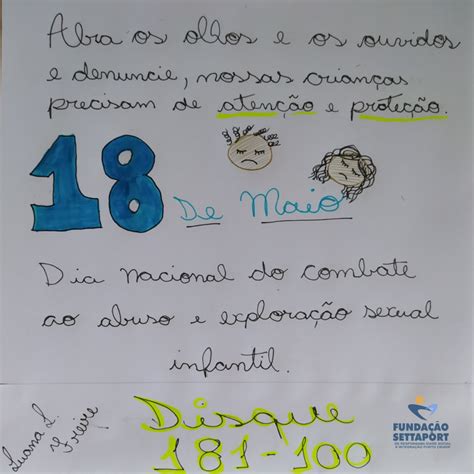 Abra os olhos e os ouvidos
e denuncie, nossas crianças
precisam de atenção e proteção.
18
De Maio
Dia nacional do combate
ao abuso e exploração sexual
infantil.
Luana L.
Freire
Disque
181-100
FUNDAÇÃO
SETTAPORT